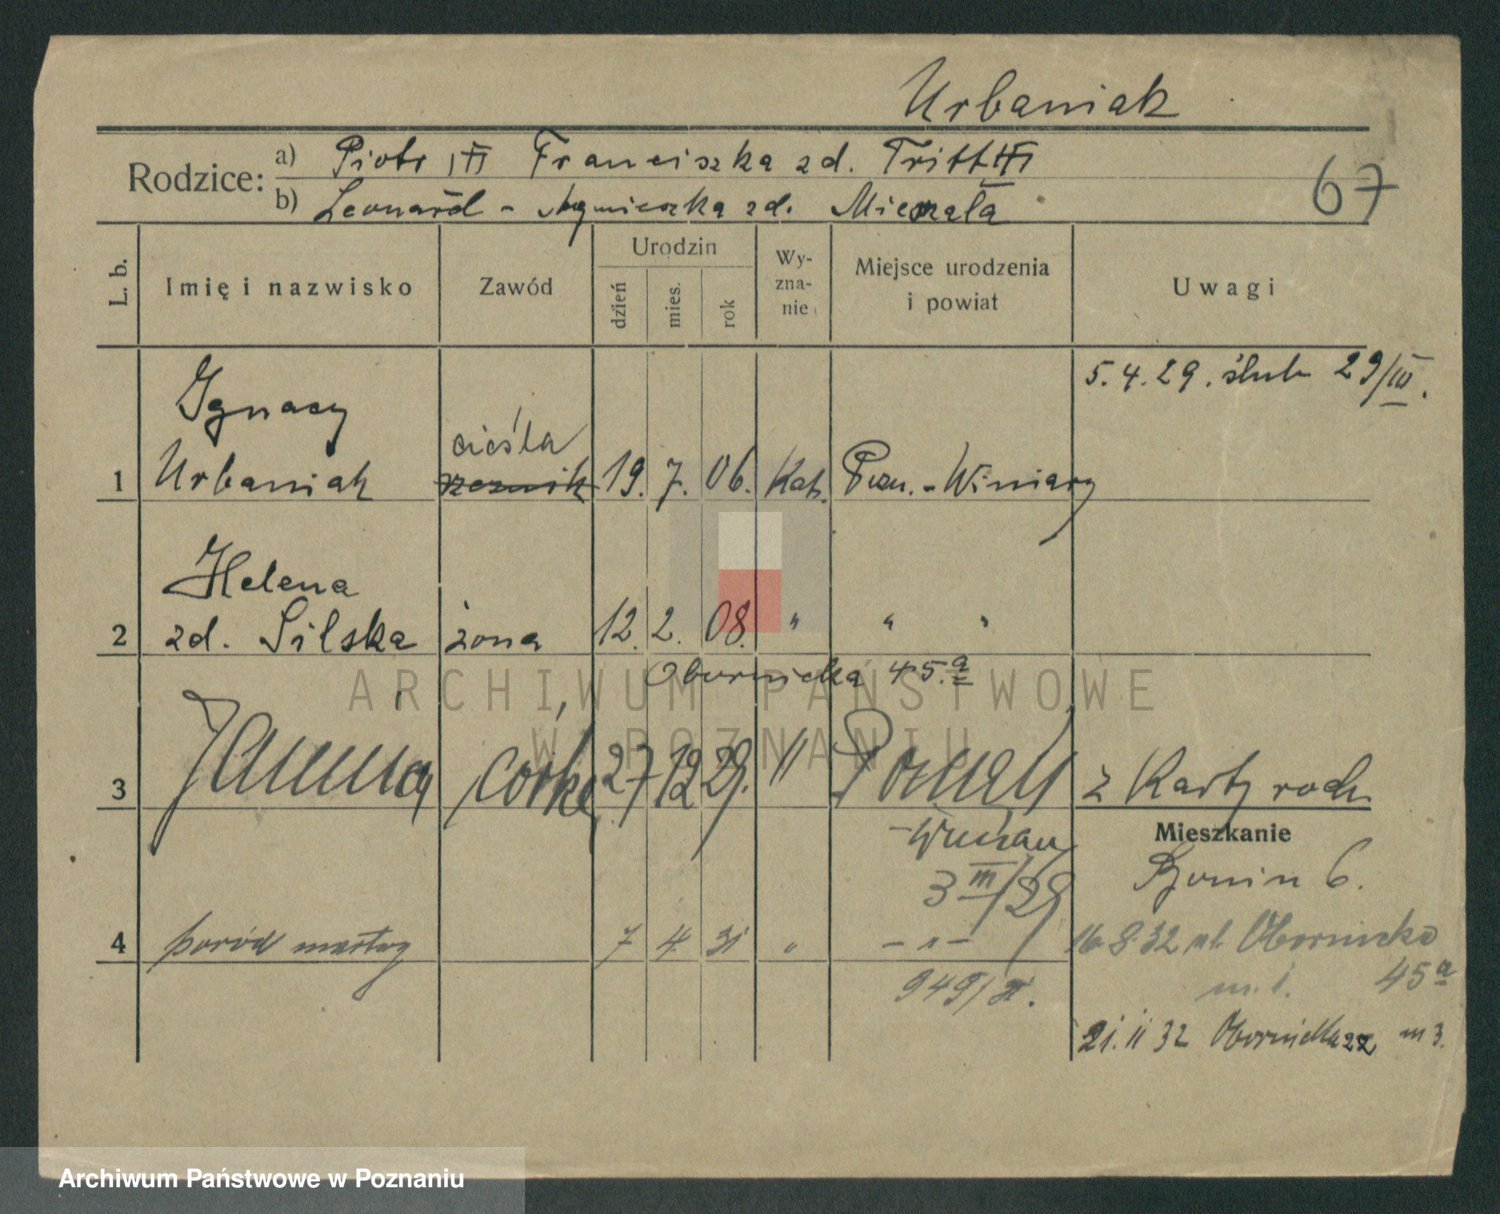 Urbaniak
Rodzice: a) Piotr Franciszka zd. Tritt
b) Leonard - Agnieszka zd.
67
L. b. Imię i nazwisko Zawód Urodzin dzień mies. rok Wy-zna-nie Miejsce urodzenia i powiat Uwagi
5. 4. 29. ślub 29/III.
Ignacy
cieśla
1 Urbaniak rzeźnik 19. 7. 06. Kat. Pozn. - Winiary
Helena
2 zd. Silska żona 12. 2. 08. " " "
Obornicka 45.a
ARCHIWUM PAŃSTWOWE
W POZNANIU
3 Janina córka 27 12 29. " Poznań z Karty rodz.
Mieszkanie
Bonin 6.
3 III/29
4 poród martwy 7 4. 31 " - " - 16.8.32 ul. Obornicka
45a
m. 1.
949/
21. 11 32 Obornicka 22 m 3.
Archiwum Państwowe w Poznaniu